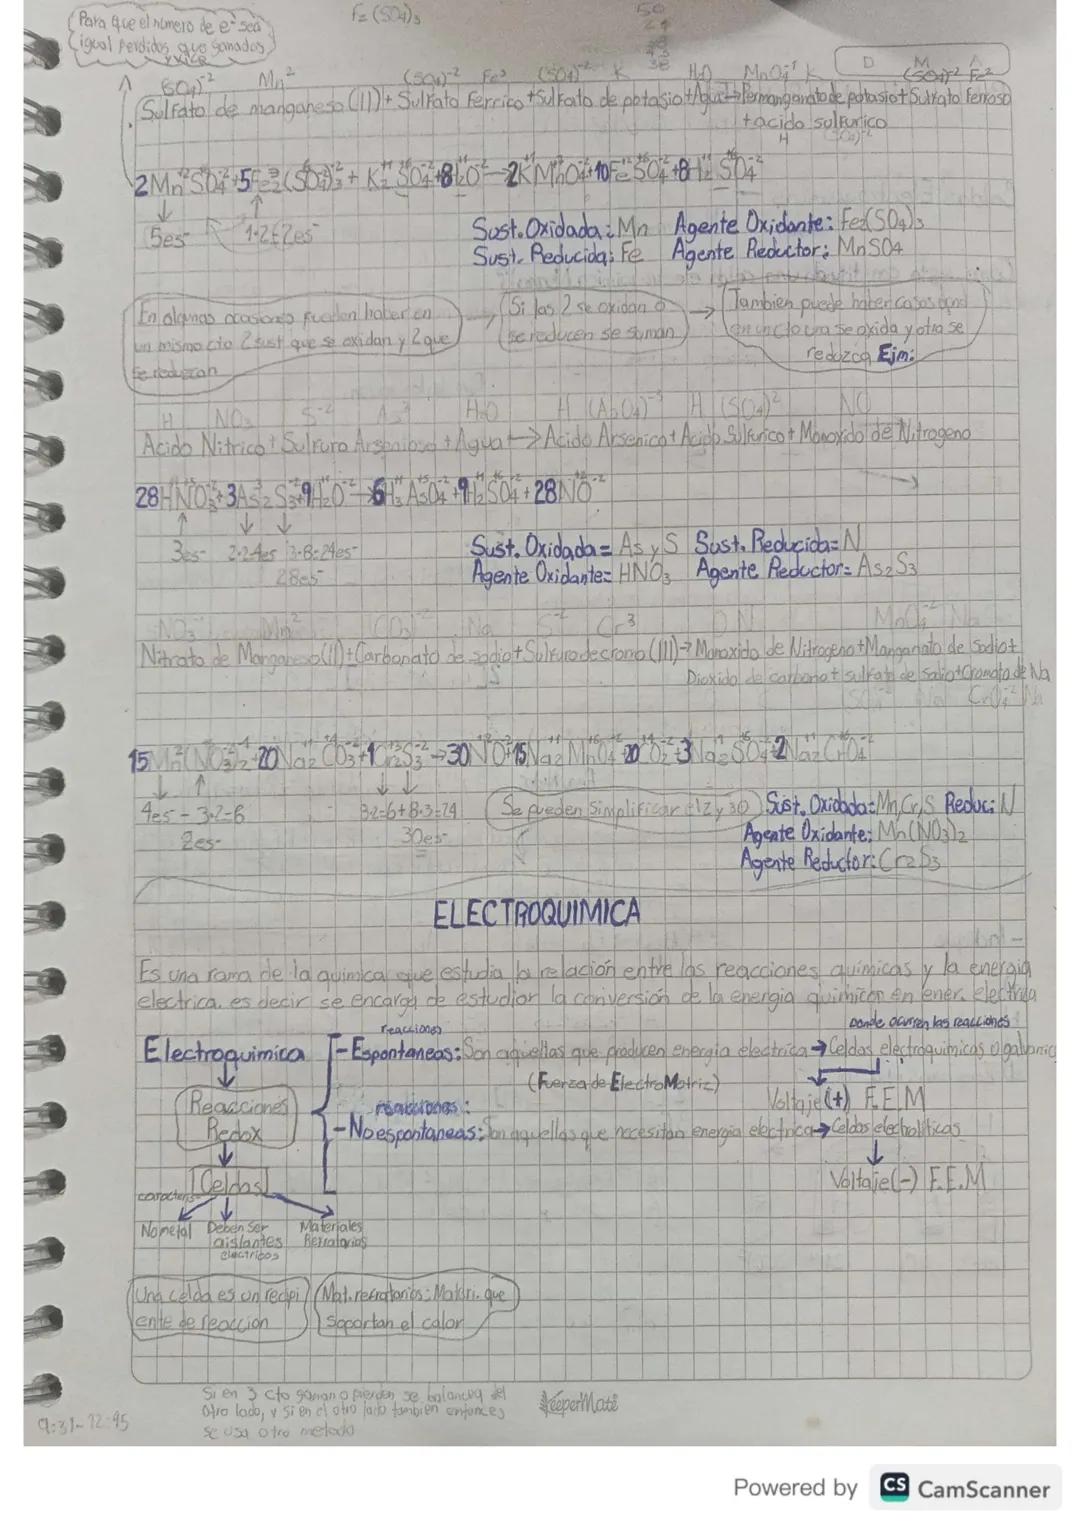 Para que el numero de e- sea
igual perdidos que ganados
Fe(SO4)3
50
24
38
D M A
(SO4)-2 Mn2 (SO4)-2 Fe3 (SO4)-2 K H2O MnO4-1 K (SO4)-2 Fe2
Sulfato de manganeso (II) + Sulfato Ferrico + Sulfato de potasio + Agua → Permanganato de potasio + Sulfato Ferroso
+ acido sulfurico
H (SO4)-2
2Mn SO4 + 5Fe2(SO4)3 + K2 SO4 + 8H2O → 2KMnO4 + 10Fe SO4 + 8H2 SO4
5es- 1·2=2es-
Sust. Oxidada: Mn Agente Oxidante: Fe2(SO4)3
Sust. Reducida: Fe Agente Reductor: MnSO4
En algunas ocasiones pueden haber en
un mismo cto 2 sust que se oxidan y 2 que
se reduzcan
Si las 2 se oxidan o
se reducen se suman
Tambien puede haber casos
en un cto una se oxida y otra se
reduzca Ejm:
H NO3 S-2 As3 H2O H (AsO4)-3 H (SO4)2 NO
Acido Nitrico + Sulfuro Arsenioso + Agua → Acido Arsenico + Acido Sulfurico + Monoxido de Nitrogeno
28HNO3 + 3As2 S3 + 9H2O → 6H3 AsO4 + 9H2SO4 + 28NO
3es- 2·2=4es 3·8=24es-
28es-
Sust. Oxidada = As y S Sust. Reducida = N
Agente Oxidante = HNO3 Agente Reductor = As2S3
NO3 Mn2 (CO3)-2 Na S-2 Cr3 O N MnO4-2 Na
Nitrato de Manganeso (II) + Carbonato de sodio + Sulfuro de cromo (III) → Monoxido de Nitrogeno + Manganato de sodio +
Dioxido de carbono + sulfato de sodio + Cromato de Na
CrO4-2 Na
15Mn(NO3)2 + 20Na2 CO3 + 1Cr2S3 → 30NO + 15Na2 MnO4 + 20CO2 + 3Na2SO4 + 2Na2CrO4
4es- 3·2=6 3·2=6+8·3=24
2es- 30es-
Se pueden simplificar el 2 y 30
Sust. Oxidada: Mn, Cr, S Reduc: N
Agente Oxidante: Mn(NO3)2
Agente Reductor: Cr2S3
ELECTROQUIMICA
Es una rama de la quimica que estudia la relación entre las reacciones quimicas y la energia
electrica. es decir se encarga de estudiar la conversión de la energia quimica en ener. electrica
reacciones Donde ocurren las reacciones
Electroquimica - Espontaneas: Son aquellas que producen energia electrica → Celdas electroquimicas o galvanic
(Fuerza de ElectroMotriz)
Voltaje (+) F.E.M
Reacciones
Redox
reacciones:
- No espontaneas: Son aquellas que necesitan energia electrica → Celdas electroliticas
Voltaje (-) F.E.M
Celdas
caracteris
No metal Deben ser Materiales
aislantes Refratarios
electricos
Una celda es un recipi
ente de reaccion
Mat. refratarios: Materi. que
soportan el calor
Si en 3 cto ganan o pierden se balancea del
otro lado, y si en el otro lado tambien entonces
se usa otro metodo
KeeperMate
9:31-12:45
Powered by CS CamScanner